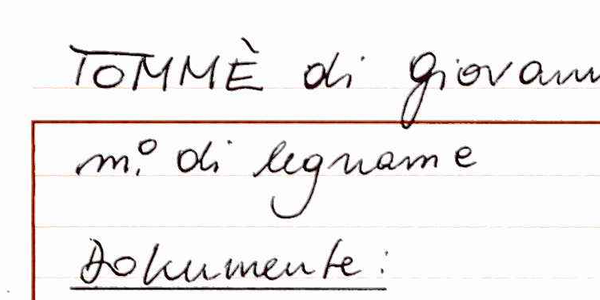 TOMMÈ di Giovann
m.º di legname
Dokumente: